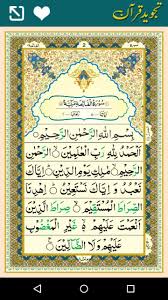 تجوید قرآن
بِسْمِ اللّٰهِ الرَّحْمٰنِ الرَّحِيْمِ
اَلْحَمْدُ لِلّٰهِ رَبِّ الْعٰلَمِيْنَ الرَّحْمٰنِ
الرَّحِيْمِ مٰلِكِ يَوْمِ الدِّيْنِ اِيَّاكَ
نَعْبُدُ وَ اِيَّاكَ نَسْتَعِيْنُ اِهْدِنَا
الصِّرَاطَ الْمُسْتَقِيْمَ صِرَاطَ الَّذِيْنَ
اَنْعَمْتَ عَلَيْهِمْ غَيْرِ الْمَغْضُوْبِ
عَلَيْهِمْ وَلَا الضَّآلِّيْنَ